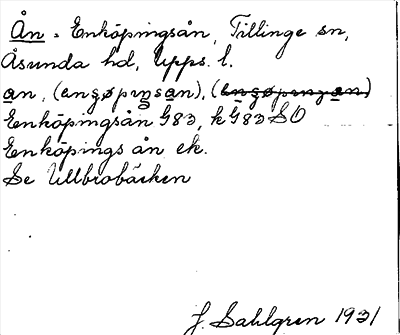 Ån = Enköpingsån, Tillinge sn,
Åsunda hd, Upps. l.
an, (enȥøpıŋsan), (
Enköpingsån G83, k G83 SO
Enköpings ån ek.
Se Ullbrobäcken
J. Sahlgren 1931